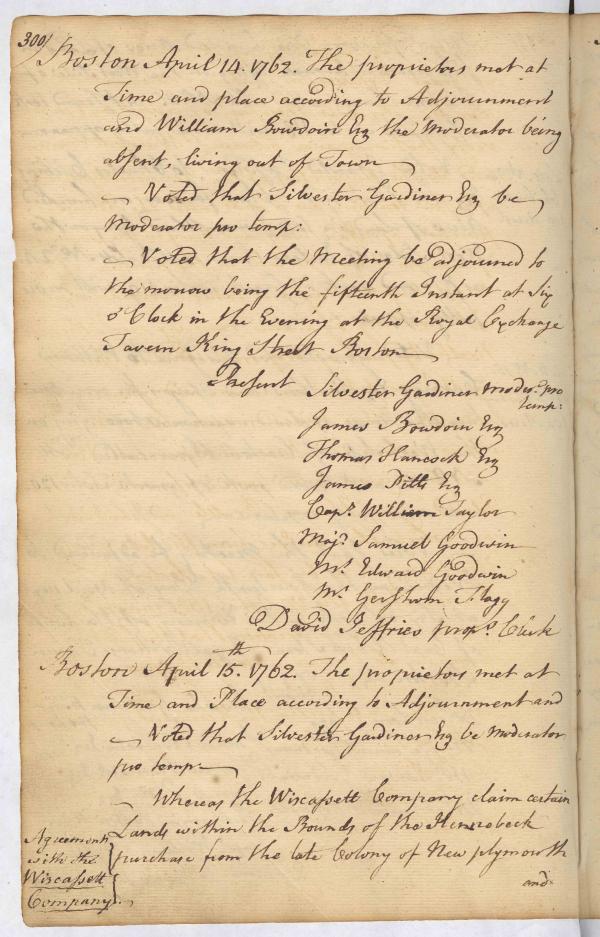 300/
Boston April 14. 1762. The proprietors met at
Time and place according to Adjournment
and William Bowdoin Esq the Moderator being
absent, living out of Town
Voted that Silvester Gardiner Esq be
Moderator pro temp:
Voted that the Meeting be adjourned to
the morrow being the fifteenth Instant at Six
o'Clock in the Evening at the Royal Exchange
Tavern King Street Boston
Present Silvester Gardiner Moder. pro
temp:
James Bowdoin Esq
Thomas Hancock Esq
James Pitts Esq
Capt. William Taylor
Majr. Samuel Goodwin
Mr. Edward Goodwin
Mr. Gershom Flagg
David Jeffries propṛs. Clerk
Boston April 15.th 1762. The proprietors met at
Time and Place according to Adjournment and
Voted that Silvester Gardiner Esq be Moderator
pro temp:
Whereas the Wiscassett Company claim certain
Lands within the Bounds of the Kennebeck
purchase from the late Colony of New plymouth
and
Agreement
with the
Wiscassett
Company